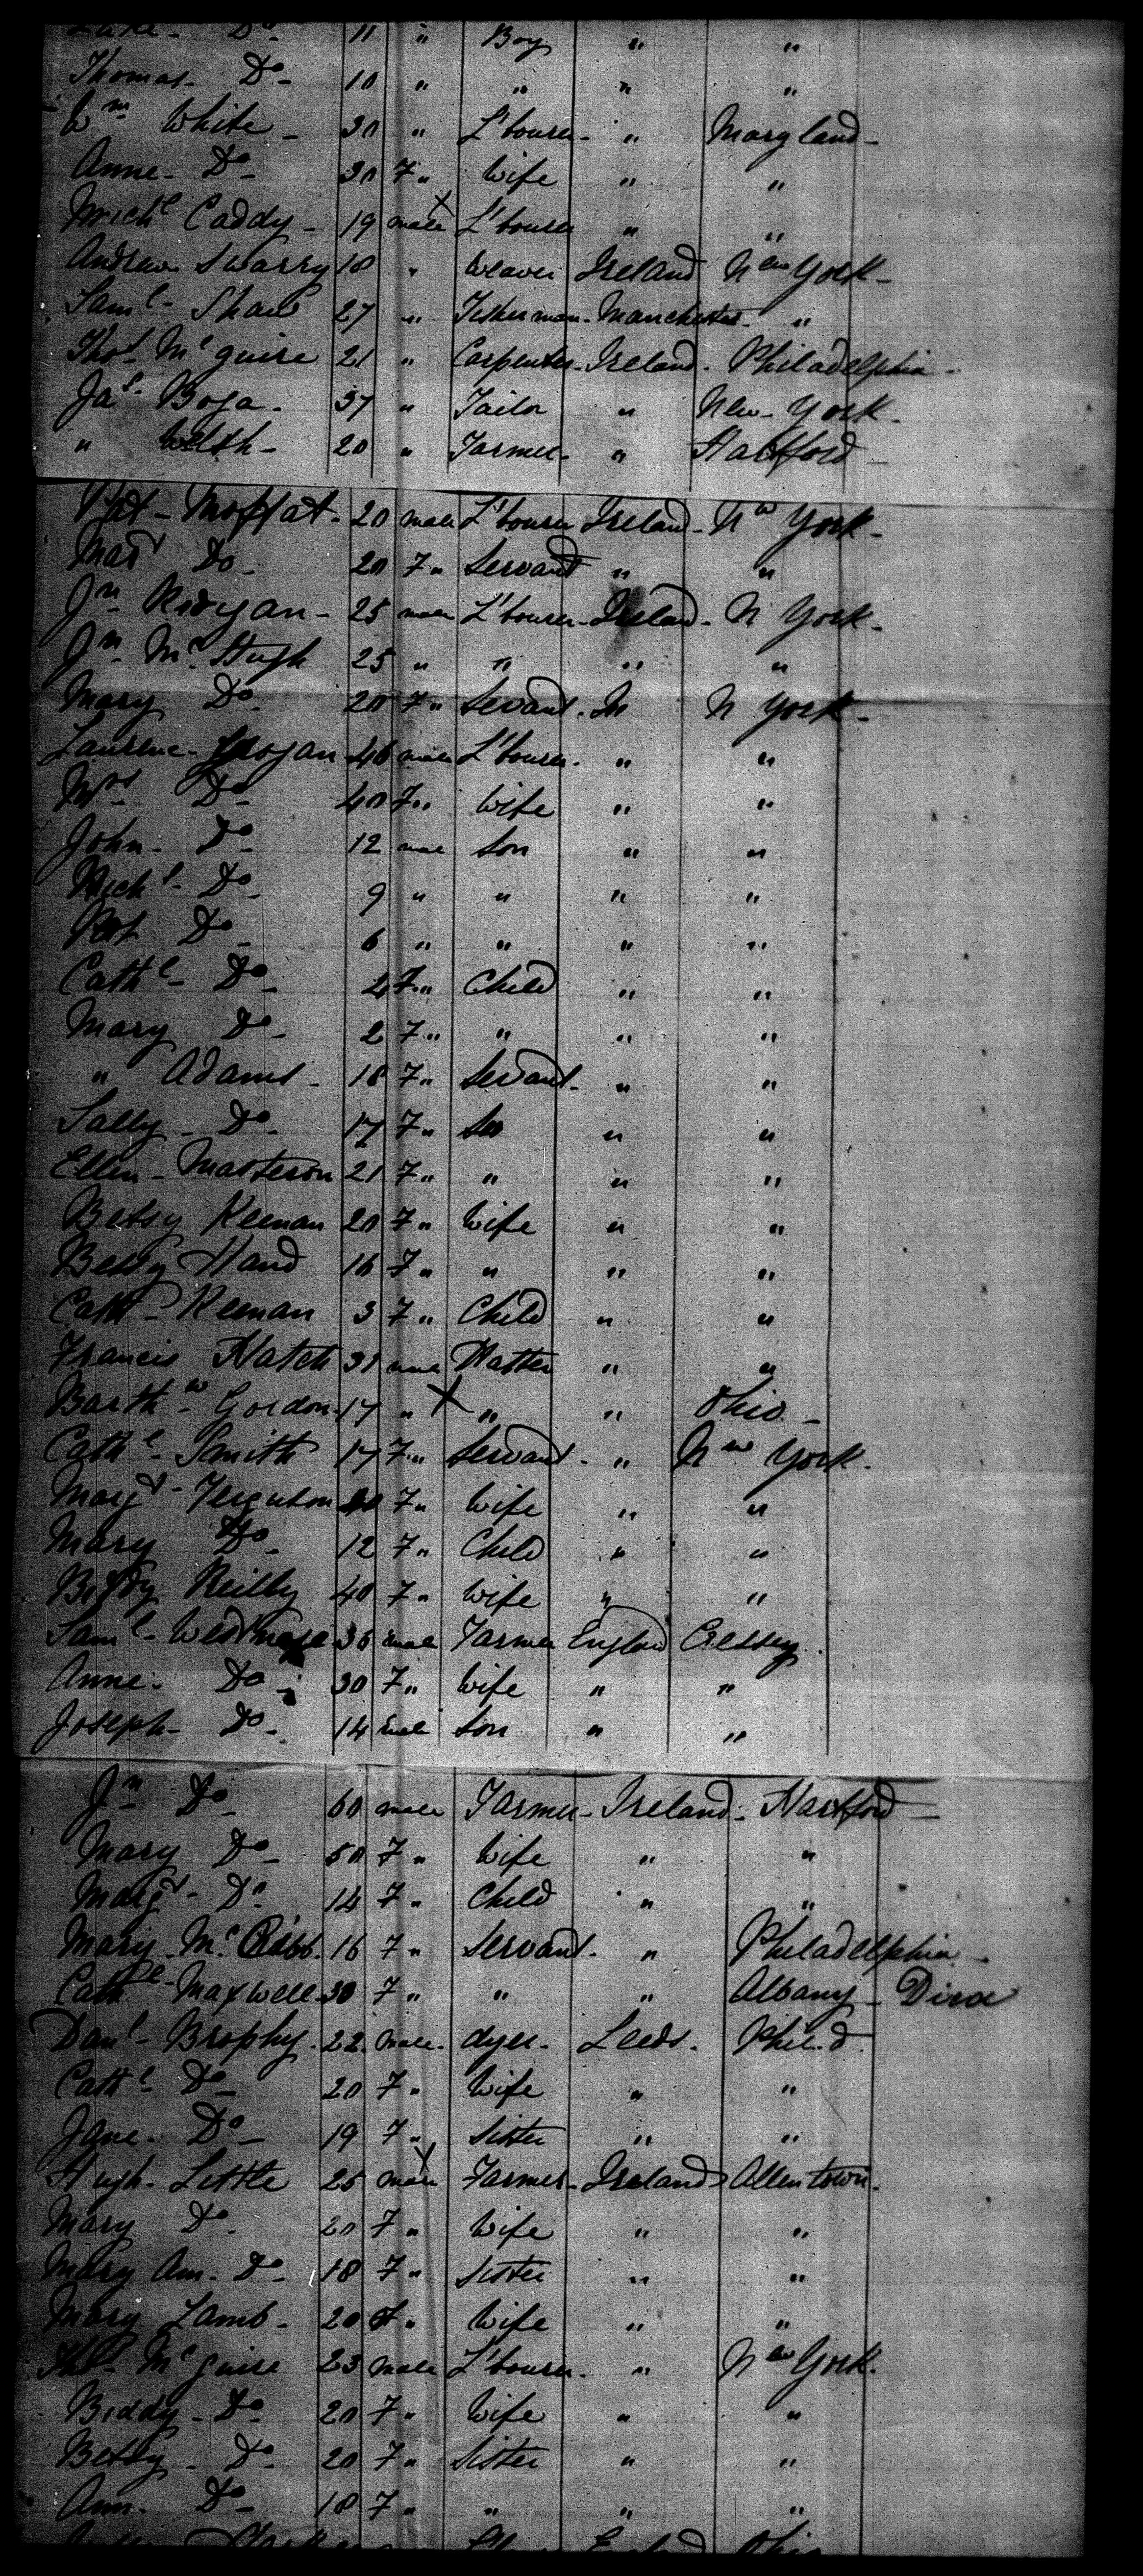 Do 11 " Boy " "
Thomas Do 10 " " " "
Wm White 30 " L'bourer " Maryland
Anne Do 30 F " Wife " "
Michl Caddy 19 male X L'bourer " "
Andrew Swarry 18 " Weaver Ireland New York
Saml Shaw 27 " Fisherman Manchester "
Thos McGuire 21 " Carpenter Ireland Philadelphia
Jas Boga 37 " Tailor " New York
" Welsh 20 " Farmer " Hartford
Pat Moffat 20 male L'bourer Ireland Nw York
Mar Do 20 F " Servant " "
Jn 25 male L'bourer Ireland N York
Jn McHugh 25 " " " "
Mary Do 20 F " Servant In N York
Laurence Grogan 46 male L'bourer " "
Mrs Do 40 F " Wife " "
John Do 12 male Son " "
Michl Do 9 " " " "
Pat Do 6 " " " "
Cathe Do 4 F " Child " "
Mary Do 2 F " " " "
" Adams 18 F " Servant " "
Sally Do 17 F " Ser " "
Ellen Masterson 21 F " " " "
Betsy Keenan 20 F " Wife " "
Betsy Hand 16 F " " " "
Cath Keenan 3 F " Child " "
Francis Hatch 31 male Hatter " "
Barthw Gordon 17 " X " " Ohio
Cathe Smith 17 F " Servant " Nw York
Margt Ferguson F " Wife " "
Mary Do 12 F " Child " "
Betsy Reilly 40 F " Wife " "
Saml 36 male Farmer England
Anne Do 30 F " Wife " "
Joseph Do 14 male Son " "
Jn Do 60 male Farmer Ireland Hartford
Mary Do 50 F " Wife " "
Margt Do 14 F " Child " "
Mary Mc 16 F " Servant " Philadelphia
Cathe Maxwell 30 F " " " Albany
Danl Brophy 22 male dyer Leeds Phild
Cathe Do 20 F " Wife " "
Jane Do 19 F " Sister " "
Hugh Little 25 male X Farmer Ireland Allentown
Mary Do 20 F " Wife " "
Mary Ann Do 18 F " Sister " "
Mary Lamb 20 F " Wife " "
McGuire 23 male L'bourer " New York
Biddy Do 20 F " Wife " "
Betsy Do 20 F " Sister " "
Ann Do 18 F " " " "